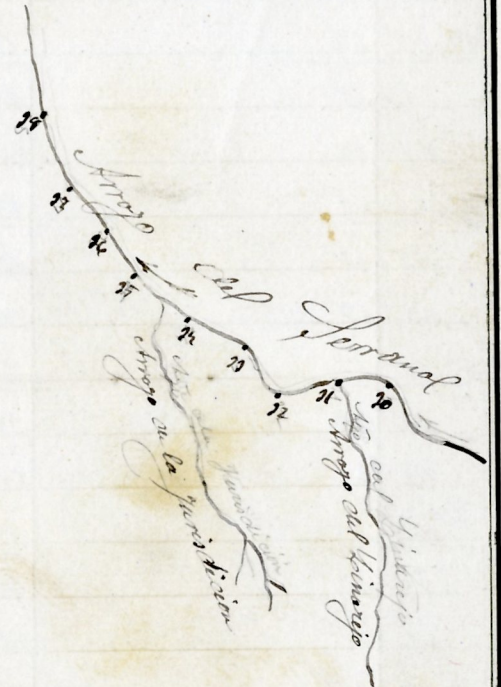 28
27
26
25
24
23
22
21
20
Arroyo del Serranal
Arroyo de la jurisdicion
Arroyo del Linarejo